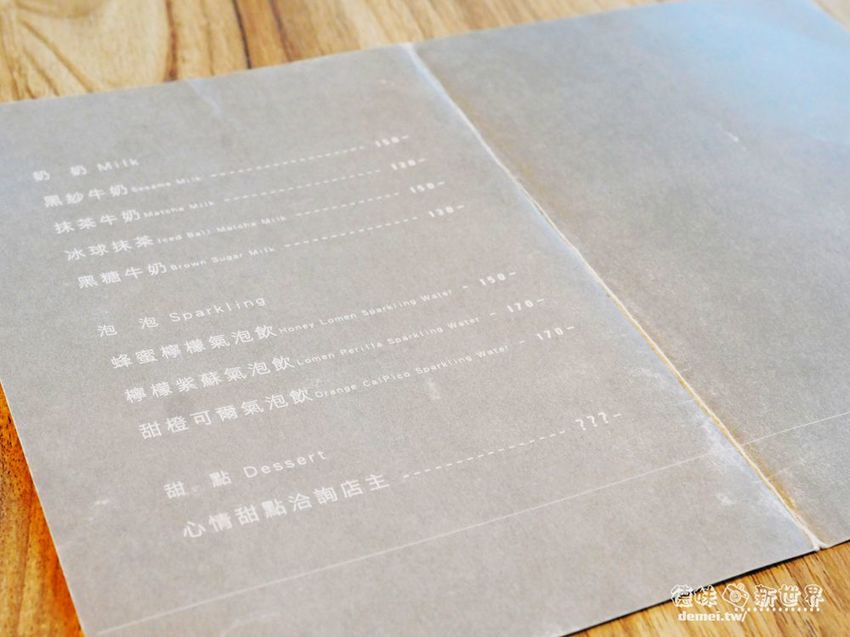 奶 奶 Milk
黑紗牛奶 Sesame Milk ---------------------- 150~
抹茶牛奶 Matcha Milk ---------------------- 130~
冰球抹茶 Iced Ball Matcha Milk ------------- 150~
黑糖牛奶 Brown Sugar Milk ---------------- 130~
泡 泡 Sparkling
蜂蜜檸檬氣泡飲 Honey Lomen Sparkling Water - 150~
檸檬紫蘇氣泡飲 Lomen Perilla Sparkling Water - 170~
甜橙可爾氣泡飲 Orange CalPico Sparkling Water - 170~
甜 點 Dessert
心情甜點洽詢店主 ------------------ ???~
德味新世界
demei.tw/